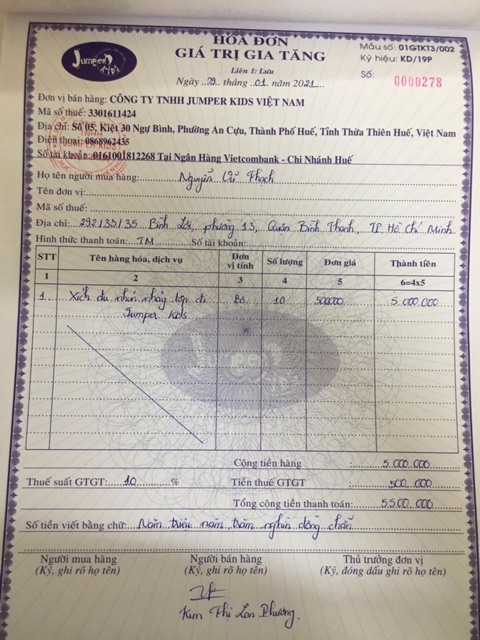 Jumper Kids
HÓA ĐƠN
GIÁ TRỊ GIA TĂNG
Liên 1: Lưu
Ngày 09 tháng 01 năm 2021
Mẫu số: 01GTKT3/002
Ký hiệu: KD/19P
Số: 0000278
Đơn vị bán hàng: CÔNG TY TNHH JUMPER KIDS VIỆT NAM
Mã số thuế: 3301611424
Địa chỉ: Số 05, Kiệt 30 Ngự Bình, Phường An Cựu, Thành Phố Huế, Tỉnh Thừa Thiên Huế, Việt Nam
Điện thoại: 0868962435
Số tài khoản: 0161001812268 Tại Ngân Hàng Vietcombank - Chi Nhánh Huế
Họ tên người mua hàng: Nguyễn Cữ Thạch
Tên đơn vị:
Mã số thuế:
Địa chỉ: 292/35/35 Bình Lợi, phường 13, Quận Bình Thạnh, TP Hồ Chí Minh.
Hình thức thanh toán: TM Số tài khoản:
STT Tên hàng hóa, dịch vụ Đơn vị tính Số lượng Đơn giá Thành tiền
1 2 3 4 5 6=4x5
1. Xích đu nhún nhảy lập đi Bộ 10 500000 5.000.000
Jumper Kids
Jumper Kids
Cộng tiền hàng 5.000.000
Thuế suất GTGT: 10 % Tiền thuế GTGT 500.000
Tổng cộng tiền thanh toán: 5.500.000
Số tiền viết bằng chữ: Năm triệu năm trăm nghìn đồng chẵn
Người mua hàng Người bán hàng Thủ trưởng đơn vị
(Ký, ghi rõ họ tên) (Ký, ghi rõ họ tên) (Ký, đóng dấu ghi rõ họ tên)
Kim Thi Lan Phương.